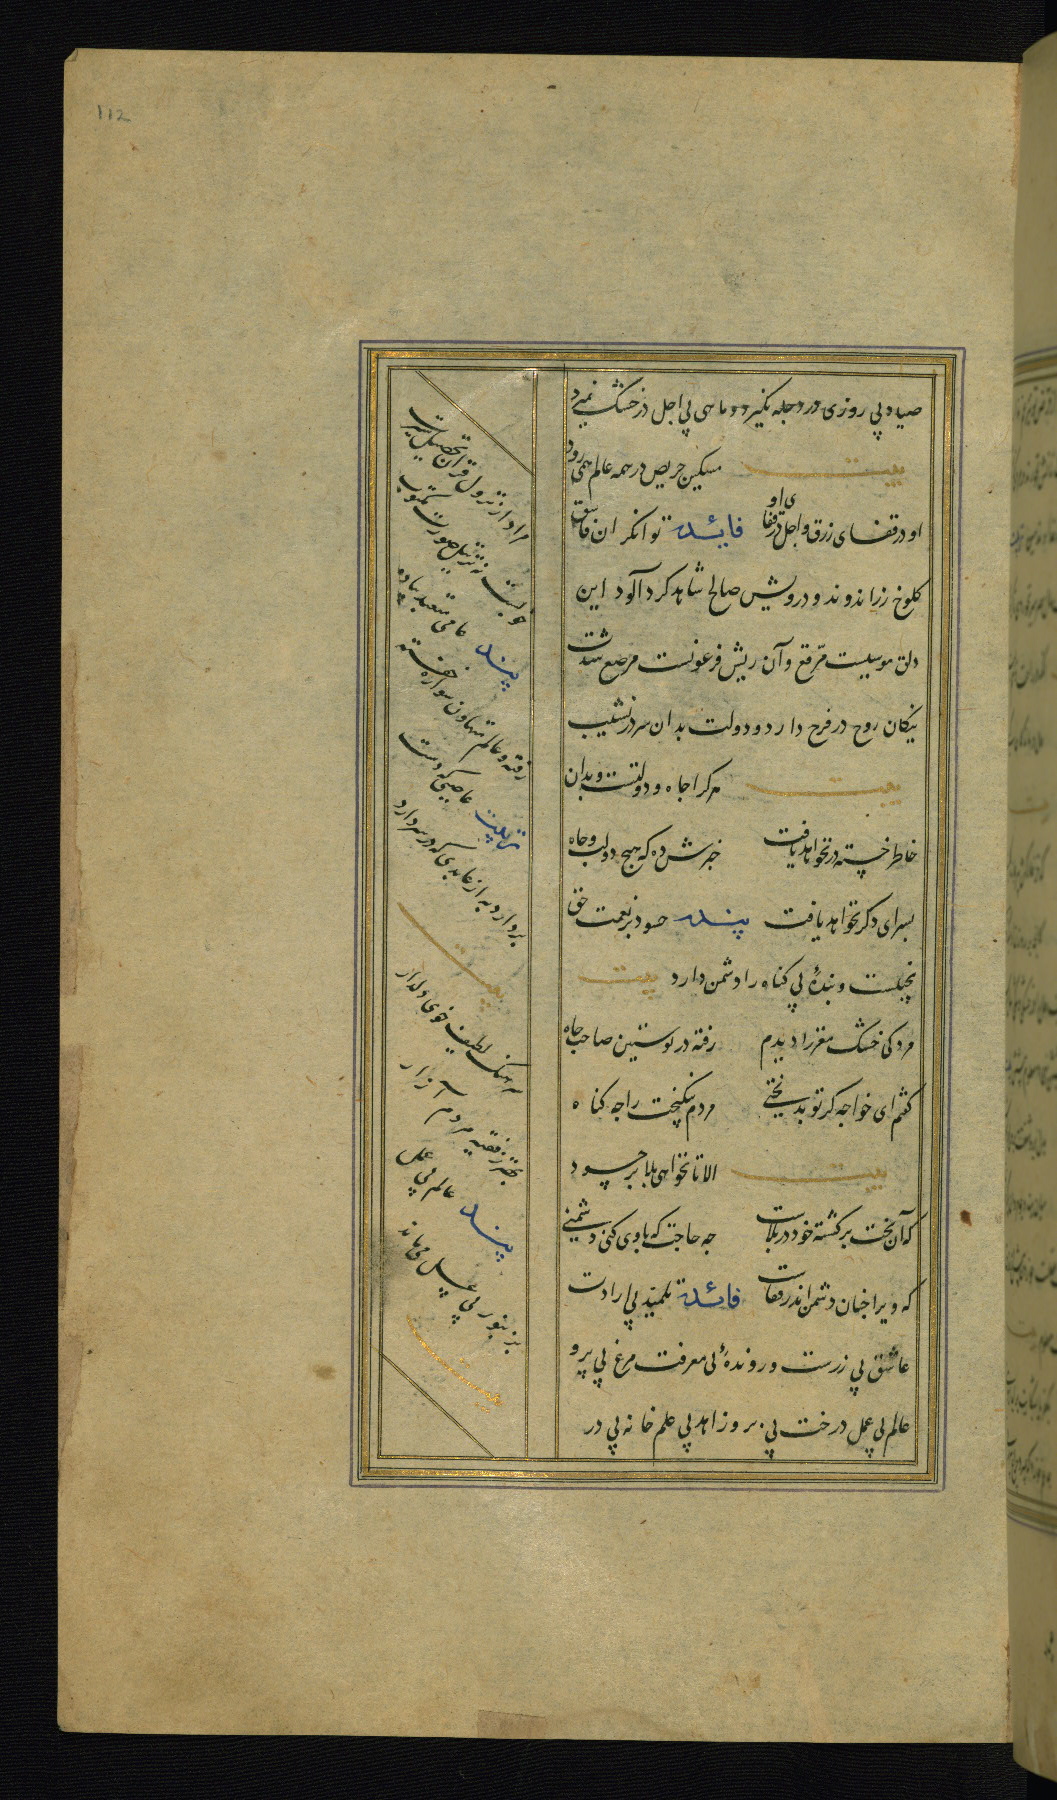 112
صیاد بی روزی در دجله نگیرد و ماهی بی اجل در خشک نمیرد
بیت مسکین حریص در همه عالم همی رود
او در قفای رزق و اجل در قفای او فائده توانگر ان فاسق
کلوخ زراندوند و درویش صالح شاهد کرد آلود این
دلق موسیست مرقع و آن ریش فرعونست مرصع شدت
نیکان روح در فرح دارد و دولت بدان سر در نشیب
بیت هر کرا جاه و دولتست و بدان
خاطر خسته در نخواهد یافت خبرش ده که هیچ دولت و جاه
بسرای دگر نخواهد یافت پند حسود بر نعمت حق
بخیلست و بندۀ بی گناه را دشمن دارد بیت
مردکی خشک مغز را دیدم رفته در پوستین صاحب جاه
گفتم ای خواجه گر تو بدبختی مردم نیکبخت را چه گناه
بیت الا تا نخواهی بلا بر حسود
که آن بخت برگشته خود در بلاست چه حاجت که با وی کنی دشمنی
که ویرا چنان دشمن اندر قفاست فائده تلمیذ بی ارادت
عاشق بی زرست و روندۀ بی معرفت مرغ بی پر و
عالم بی عمل درخت بی بر و زاهد بی علم خانه بی در
مراد از نزول قرآن تحصیل سیرت
خوبست نه ترتیل صورت مکتوب
پند عامی متعبد پیاده
رفته و عالم متهاون سوار خفته
عاصی که دست
بردارد به از عابدی که در سر دارد
بیت
سرهنگ لطیف خوی دلدار
بهتر ز فقیه مردم آزار
پند عالم بی عمل
بزنبور بی عسل می ماند
بیت